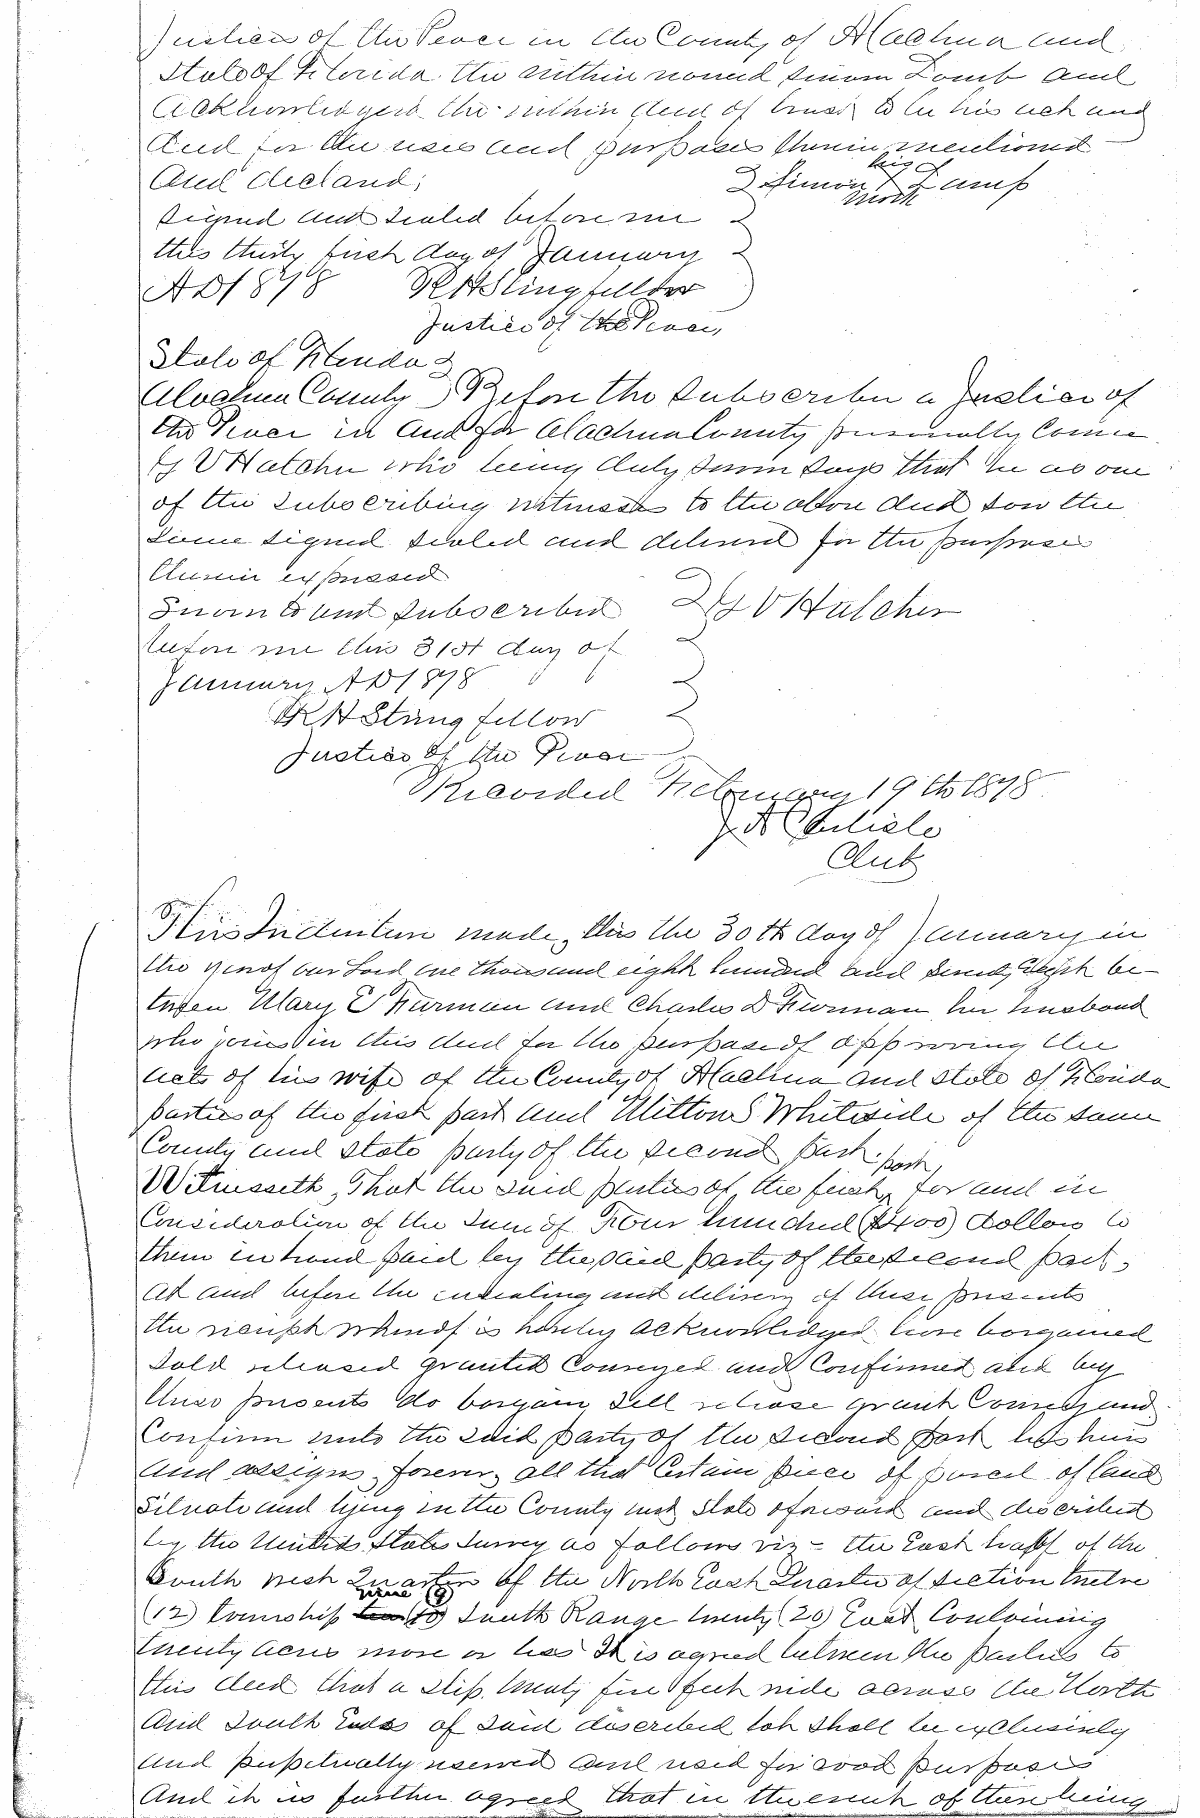 Justice of the Peace in the County of Alachua and
State of Florida the within named Simon Lamb and
Acknowledged the within deed of trust to be his act and
deed for the uses and purposes therein mentioned
And declared;
his
Simon X Lamp
mark
Signed and Sealed before me
this thirty first day of January
AD 1878 RHStringfellow
Justice of the Peace
State of Florida
Alachua County Before the Subscriber a Justice of
the Peace in and for Alachua County personally Came
V Hatcher who being duly sworn says that he as one
of the Subscribing witnesses to the above deed saw the
Same signed sealed and delivered for the purposes
therein expressed
Sworn to and Subscribed V Hatcher
before me this 31st day of
January AD 1878
RHStringfellow
Justice of the Peace
Recorded February 19th 1878
J A Carlisle
Clerk
This Indenture made, this the 30th day of January in
the year of our Lord one thousand eight hundred and Seventy Eight be-
tween Mary E Furman and Charles D Furman her husband
who joins in this deed for the purpose of approving the
acts of his wife of the County of Alachua and state of Florida
parties of the first part and Milton S Whiteside of the same
County and state party of the second part.
part,
Witnesseth, That the said parties of the first, for and in
Consideration of the Sum of Four hundred ($400) dollars to
them in hand paid by the said party of the second part,
at and before the ensealing and delivery of these presents
the receipt whereof is hereby acknowledged have bargained
Sold released granted Conveyed and Confirmed and by
these presents do bargain Sell release grant Convey and
Confirm unto the said party of the second part his heirs
and assigns, forever, all that Certain piece of parcel of land
Situate and lying in the County and State aforesaid and described
by the United States Survey as follows viz - the East half of the
South west Quarter of the North East Quarter of Section twelve
nine (9)
(12) township ten (10) South Range twenty (20) East Containing
twenty acres more or less It is agreed between the parties to
this deed that a slip twenty five feet wide across the North
And South Ends of said described lot shall be exclusively
and perpetually reserved and used for road purposes
And it is further agreed that in the event of there being